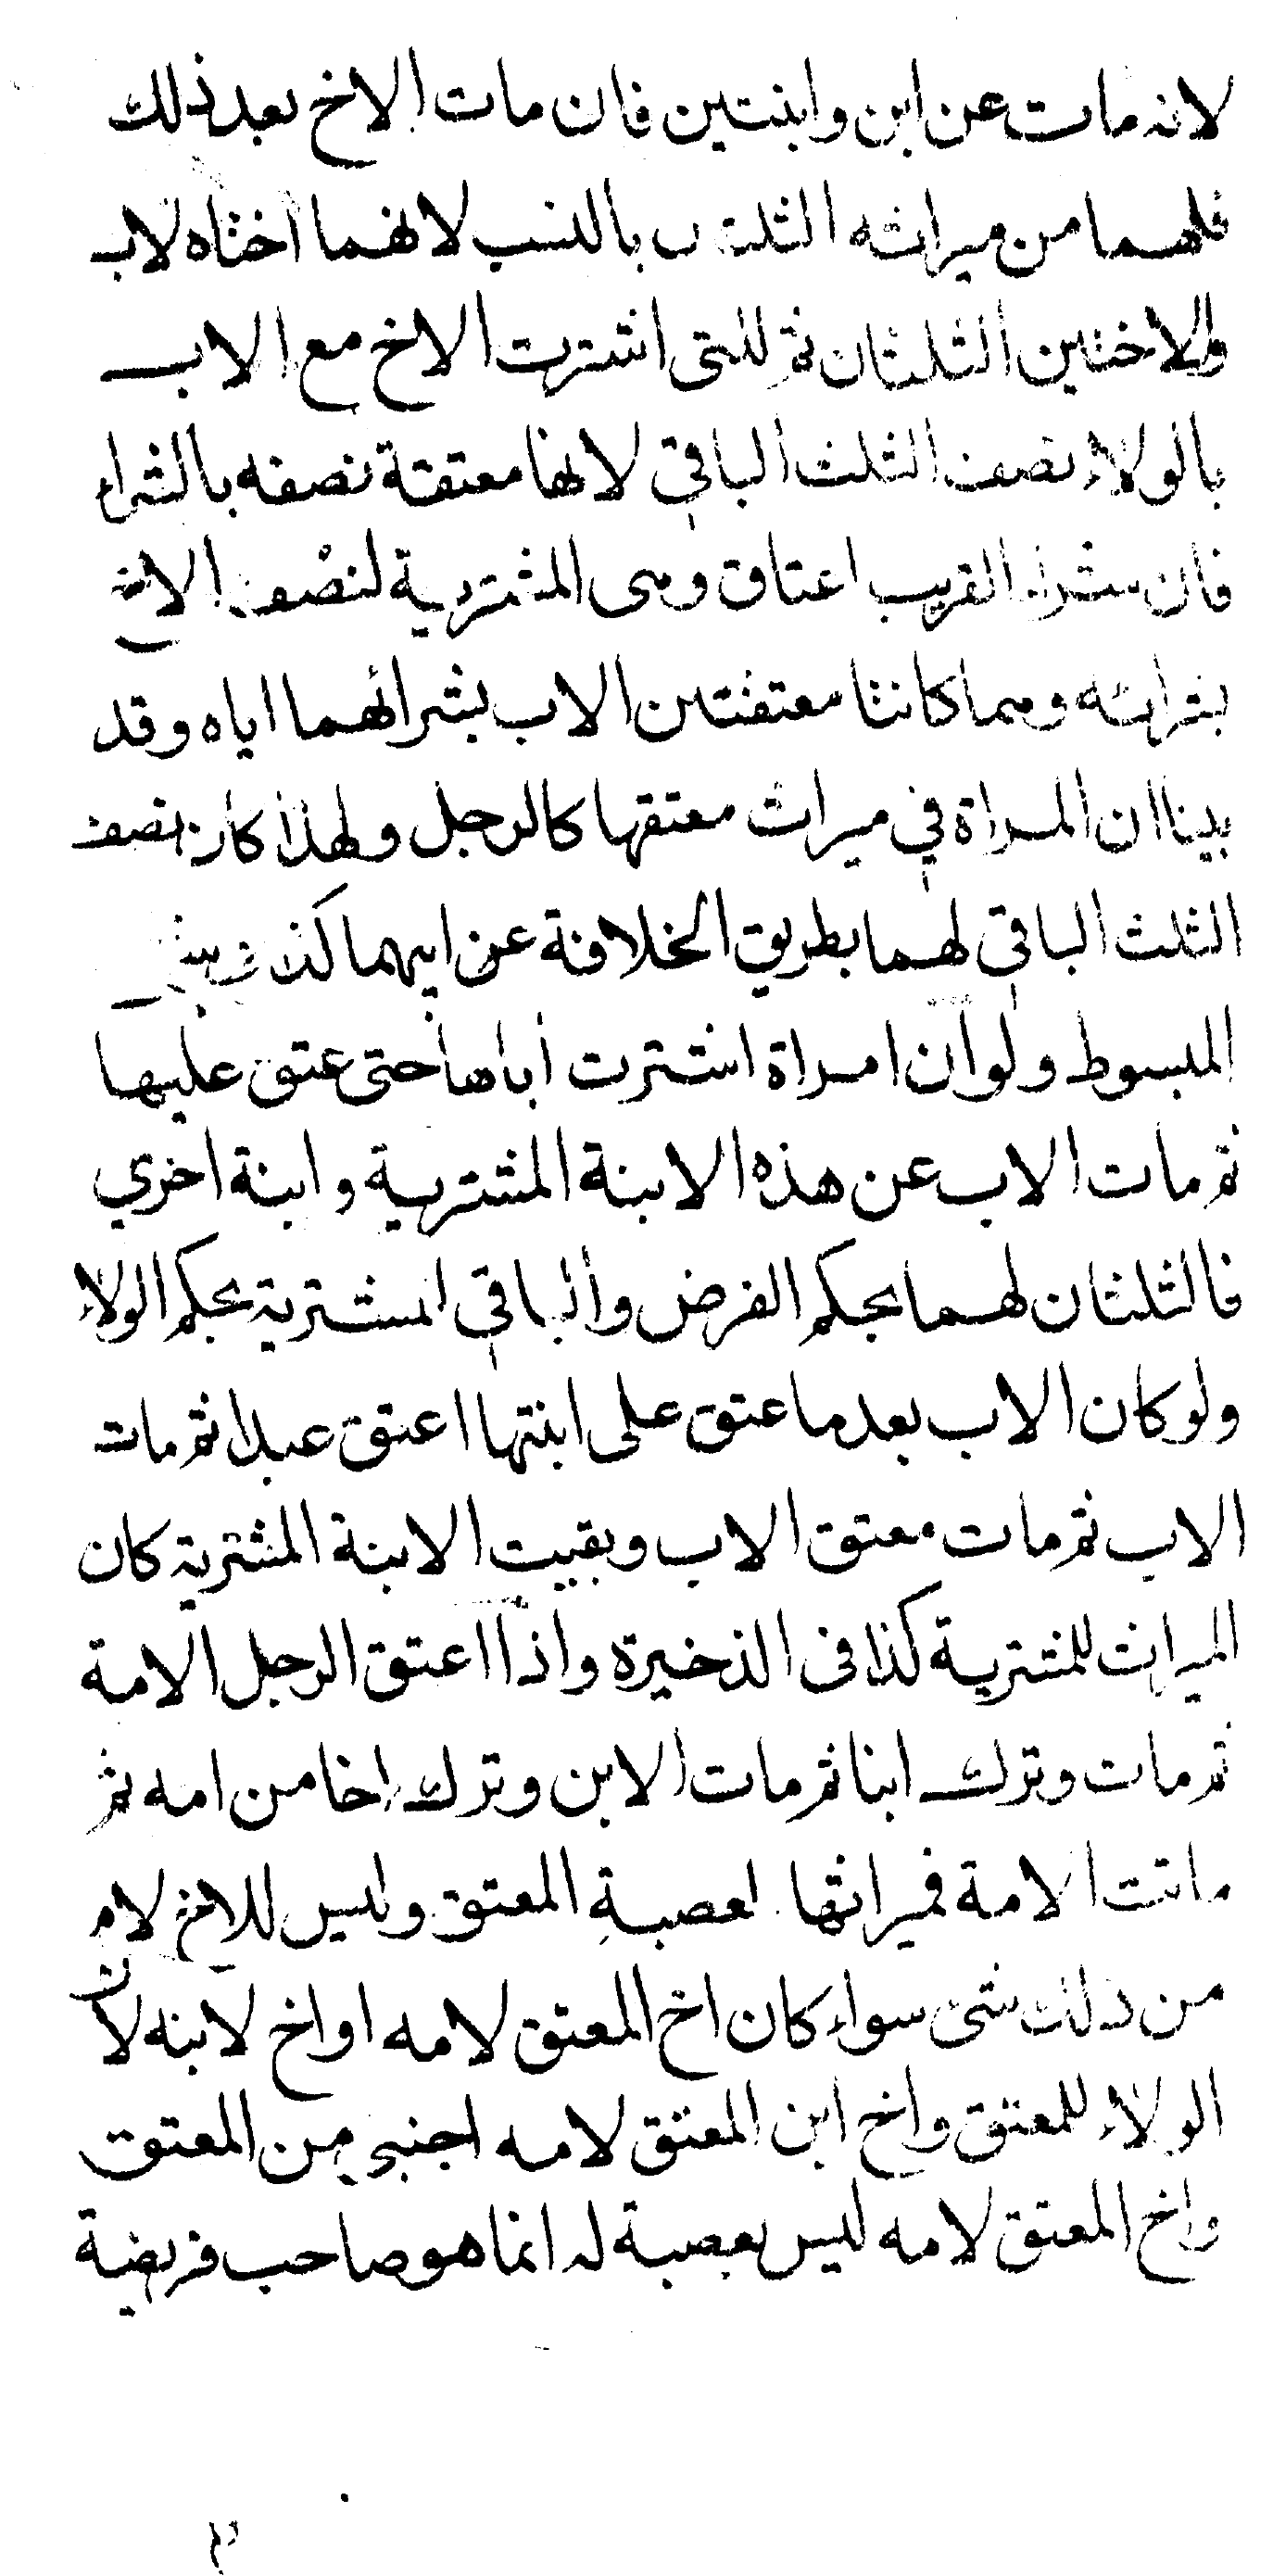 لانه مات عن ابن وابنتين فان مات الاخ بعد ذلك
فلهما من ميراثه الثلثان بالنسب لانهما اختاه لاب
وللاختين الثلثان ثم للتى اشترت الاخ مع الاب
بالولاء نصف الثلث الباقي لانها معتقة نصفه بالشراء
فان شراء القريب اعتاق وهى المشترية لنصف الاخ
بشرائه وهما كانتا معتقتين الاب بشرائهما اياه وقد
بينا ان المراة في ميراث معتقها كالرجل ولهذا كان نصف
الثلث الباقي لهما بطريق الخلافة عن ابيهما كذا فى
المبسوط ولو ان امراة اشترت اباها حتى عتق عليها
ثم مات الاب عن هذه الابنة المشترية وابنة اخري
فالثلثان لهما بحكم الفرض والباقي لمشترية بحكم الولاء
ولو كان الاب بعد ما عتق على ابنتها اعتق عبدا ثم مات
الاب ثم مات معتق الاب وبقيت الابنة المشترية كان
الميراث للمشترية كذا فى الذخيرة واذا اعتق الرجل الامة
ثم مات وترك ابنا ثم مات الابن وترك اخا من امه ثم
ماتت الامة فميراثها لعصبة المعتق وليس للاخ لام
من ذلك شى سواء كان اخ المعتق لامه او اخ لابنه لان
الولاء للمعتق واخ ابن المعتق لامه اجنبي من المعتق
واخ المعتق لامه ليس بعصبة له انما هو صاحب فريضة